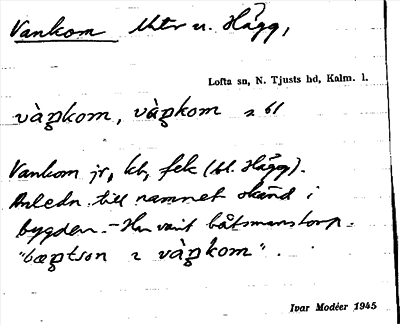 Vankom Uttr u. Hägg,
Lofta sn, N. Tjusts hd, Kalm. l.
vàŋkom, vàŋkom 2 bl
Vankom jr, kb, fek (bl. Hägg).
Anledn. till namnet okänd i
bygden. – Har varit båtsmanstorp.
"bœŋtson 2 vàŋkom".
Ivar Modéer 1945